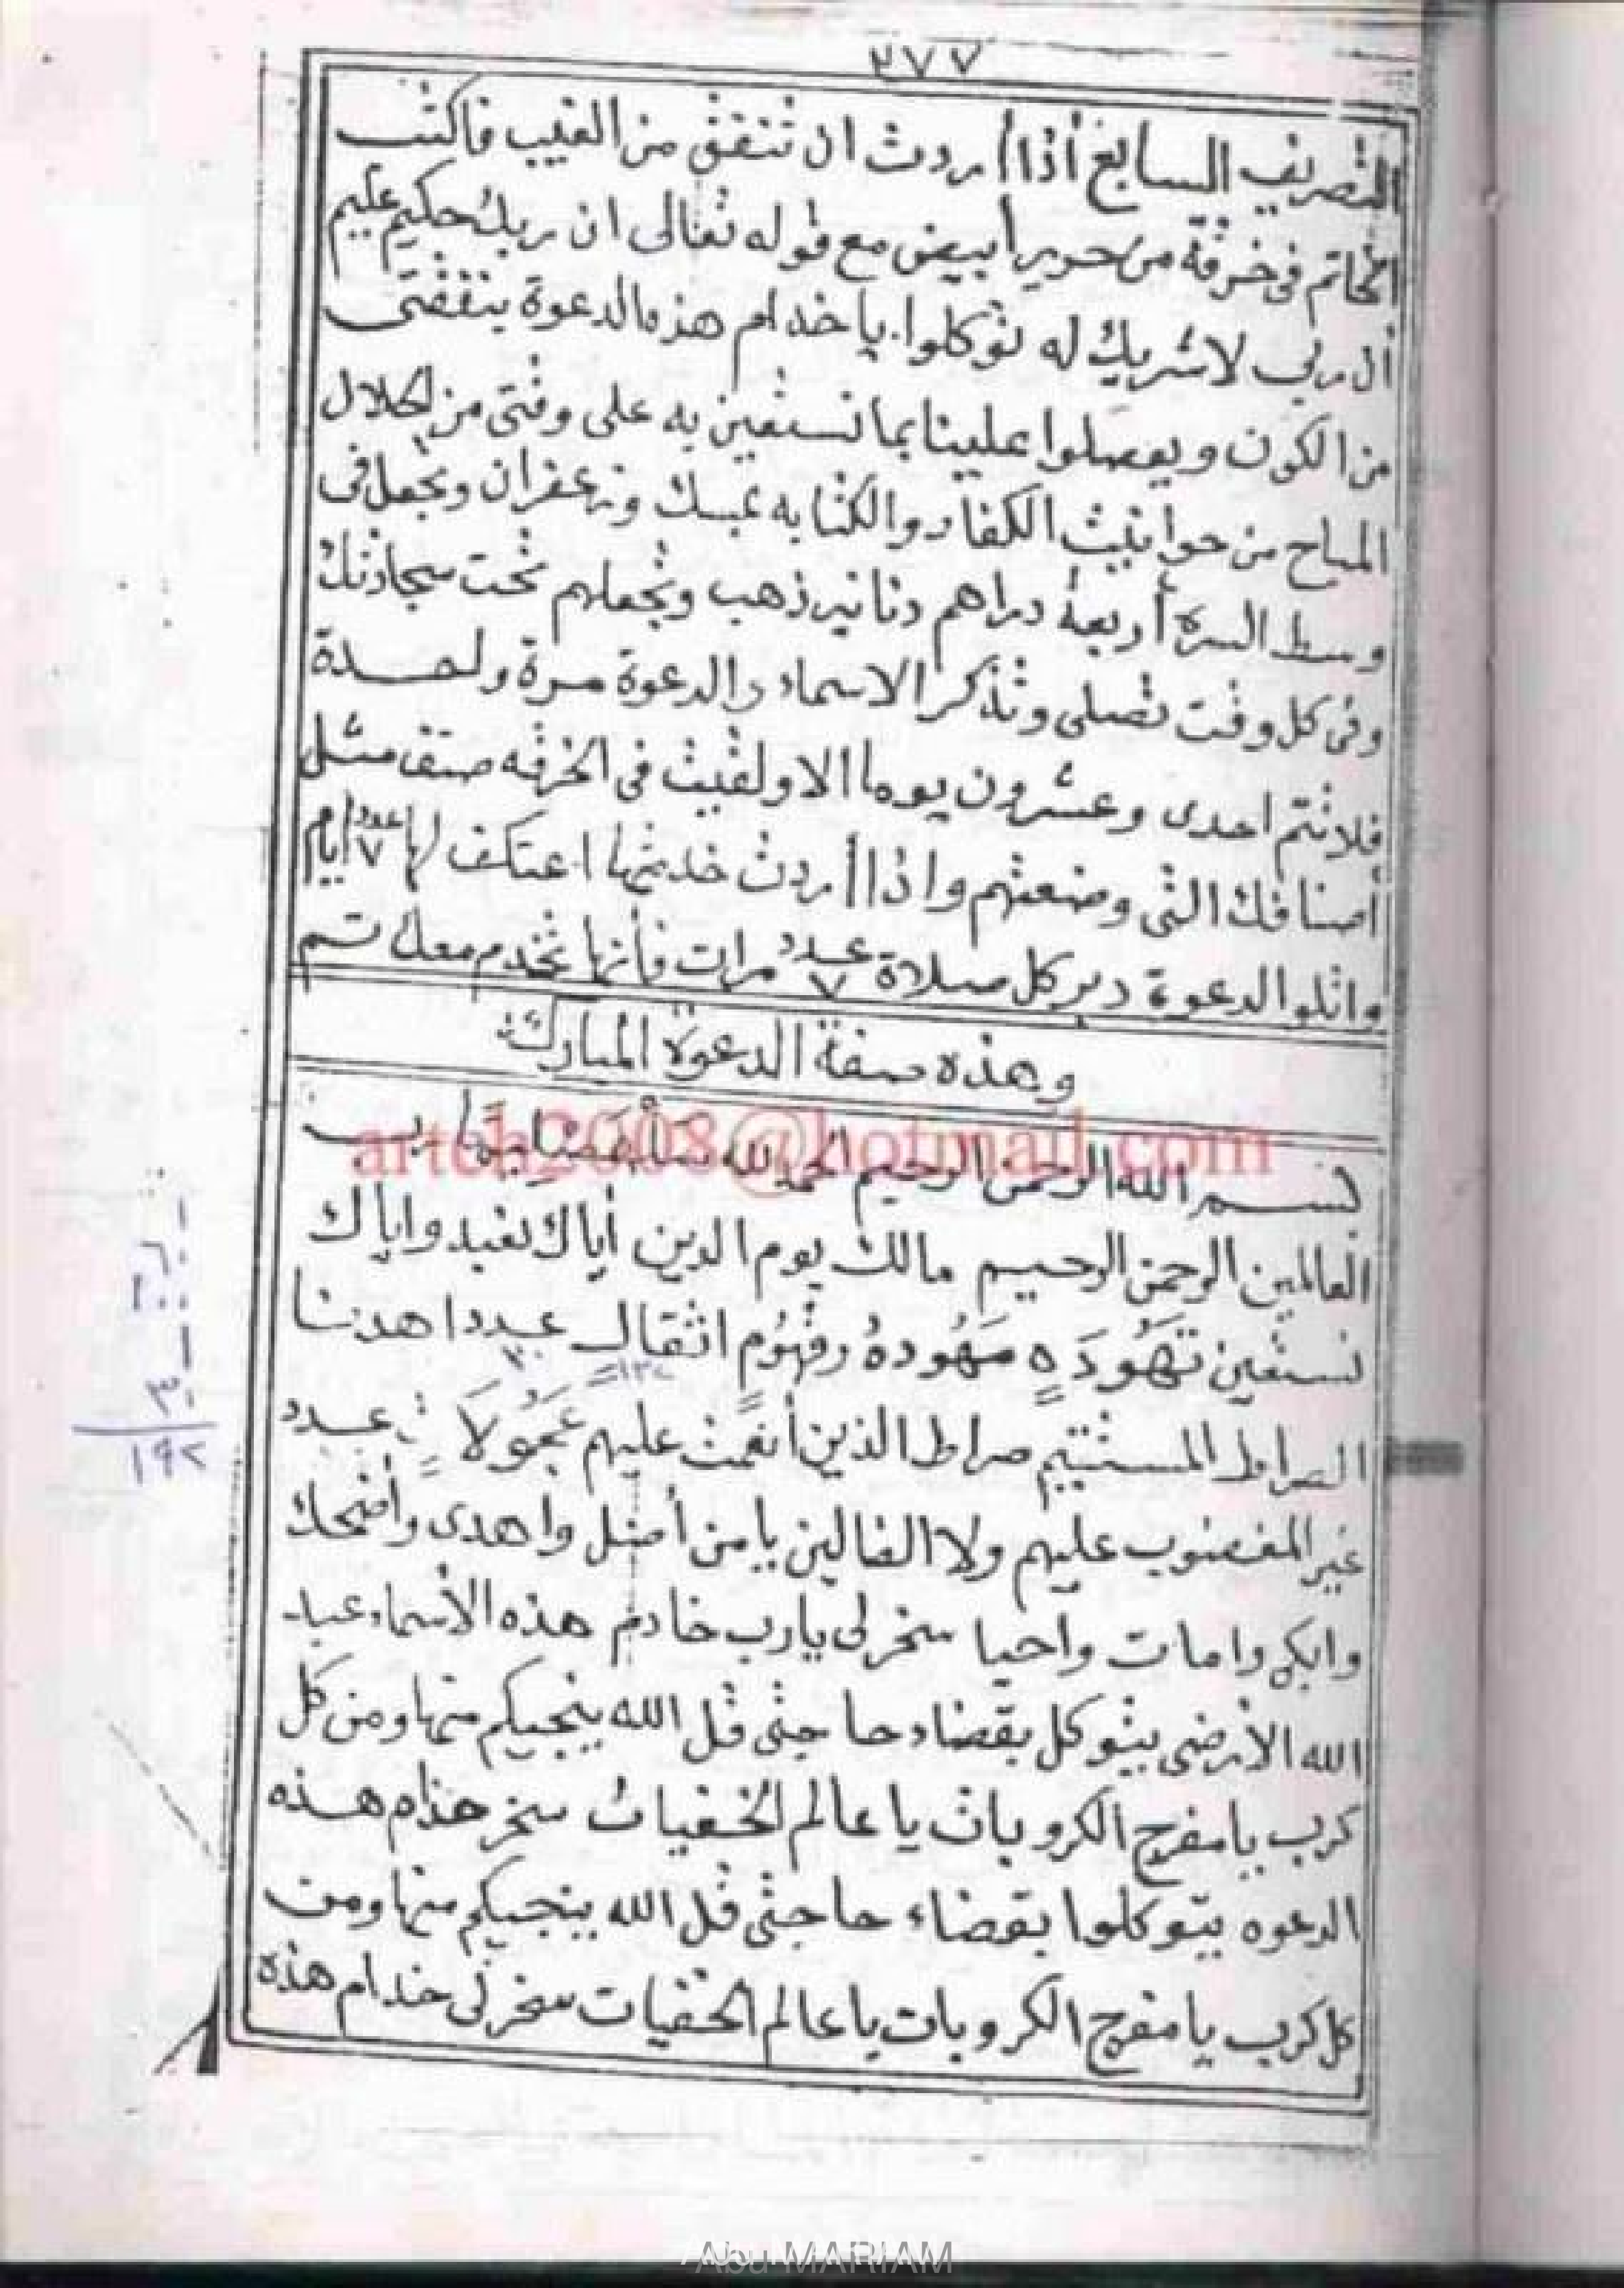 ٢٧٧
التصريف السابع أذا أردت ان تنفق من الغيب فاكتب
الخاتم فى خرقة من حرير أبيض مع قوله تعالى ان ربك حكيم عليم
أل ربى لاشريك له توكلوا يا خدام هذه الدعوة بنفقتى
من الكون ويعصلوا علينا بما نستعين به على وقتى من الحلال
المباح من حوانيت الكفار والكتابه بمسك وزعفران وتجعل فى
وسط السرة أربعة دراهم دنانير ذهب وتجعلهم تحت سجادتك
وفى كل وقت تصلى وتذكر الاسماء والدعوة مرة واحدة
فلا تتم احدى وعشرون يوما الا ولقيت فى الخرقه صنف مثل
أصنافك التى وضعتهم واذا أردت خدمتها اعتكف لها عدد ٧ أيام
واتلوا الدعوة دبر كل صلاة عدد ٧ مرات فأنها تخدم معك تسم
وهذه صفة الدعوة المباركة
بسم الله الرحمن الرحيم الحمد لله رب
العالمين الرحمن الرحيم مالك يوم الدين أياك نعبد واياك
نستعين تَهُودَهٍ مَهُودهُ رقهُوم اثقال عدد اهدنا
الصراط المستقيم صراط الذين أنعمت عليهم عدد
غير المغضوب عليهم ولا الضالين يا من أضل واهدى وأضحك
وابكى وامات واحيا سخر لى يارب خادم هذه الأسماء عبد
الله الأرضى يتوكل بقضاء حاجتى قل الله ينجيكم منها ومن كل
كرب يا مفرج الكروبات يا عالم الخفيات سخر خدام هذه
الدعوه يتوكلوا بقضاء حاجتى قل الله ينجيكم منها ومن
كل كرب يا مفرج الكروبات يا عالم الخفيات سخر لى خدام هذه
١٩٢
arteh2008@hotmail.com
Abu MARIAM